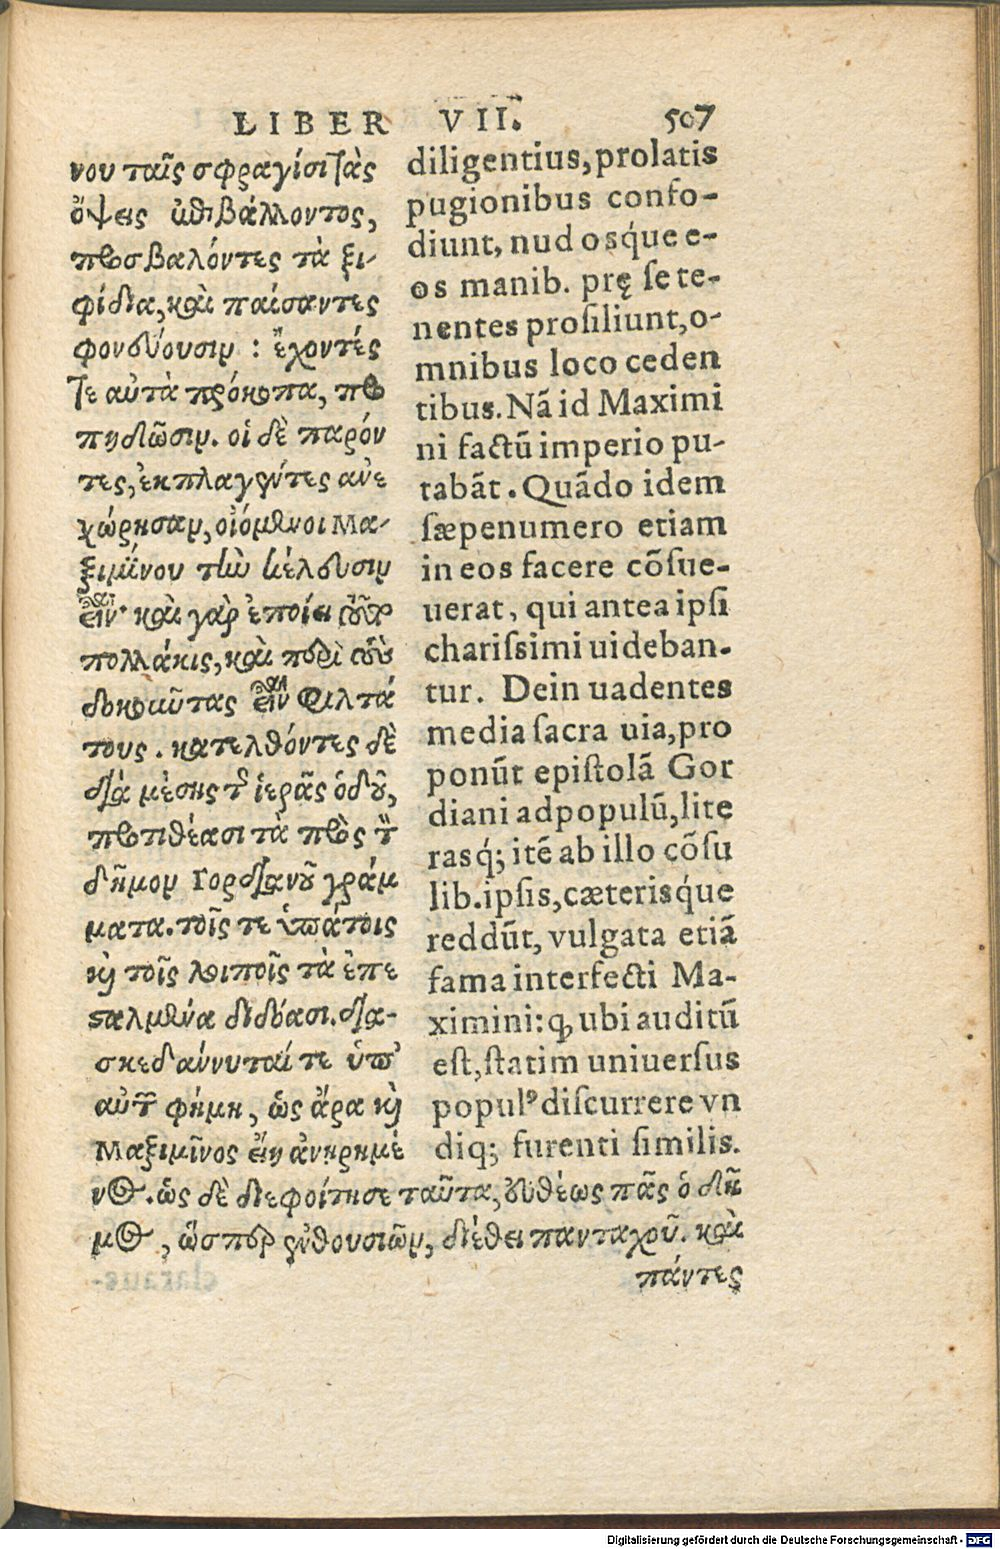 LIBER VII. 507
νου ταῖς σφραγίσι τὰς
ὄψεις ἐπιβάλλοντος,
προσβαλόντες τὰ ξι-
φίδια, καὶ παίσαντες
φονεύουσιν : ἔχοντές
τε αὐτὰ πρόκοπα, προ
πηδῶσιν. οἱ δὲ παρόν
τες, ἐκπλαγέντες ἀνε
χώρησαν, οἰόμενοι Μα-
ξιμίνου τὴν κέλευσιν
εἶναι· καὶ γὰρ ἐποίει οὕτω
πολλάκις, καὶ περὶ τοὺς
δοκοῦντας εἶναι φιλτά
τους. κατελθόντες δὲ
διὰ μέσης τῆς ἱερᾶς ὁδοῦ,
προτιθέασι τὰ πρὸς τὸν
δῆμον Γορδιανοῦ γράμ
ματα. τοῖς τε ὑπάτοις
καὶ τοῖς λοιποῖς τὰ ἐπε
σαλμένα διδόασι. δια-
σκεδάννυταί τε ὑπ'
αὐτῶν φήμη, ὡς ἄρα καὶ
Μαξιμῖνος εἴη ἀνῃρημέ
νος. ὡς δὲ διεφοίτησε ταῦτα, εὐθέως πᾶς ὁ δῆ
μος, ὥσπερ ἐνθουσιῶν, διέθει πανταχοῦ. καὶ
πάντες
diligentius, prolatis
pugionibus confo-
diunt, nudosq́ue e-
os manib. prę se te-
nentes prosiliunt, o-
mnibus loco ceden
tibus. Nã id Maximi
ni factũ imperio pu-
tabãt. Quãdo idem
sæpenumero etiam
in eos facere cõsue-
uerat, qui antea ipsi
charissimi uideban-
tur. Dein uadentes
media sacra uia, pro
ponũt epistolã Gor
diani ad populũ, lite
rasq́; itẽ ab illo cõsu
lib. ipsis, cæterisq́ue
reddũt, vulgata etiã
fama interfecti Ma-
ximini: ꝙ ubi auditũ
est, statim uniuersus
populꝰ discurrere vn
diq; furenti similis.
Digitalisierung gefördert durch die Deutsche Forschungsgemeinschaft - DFG